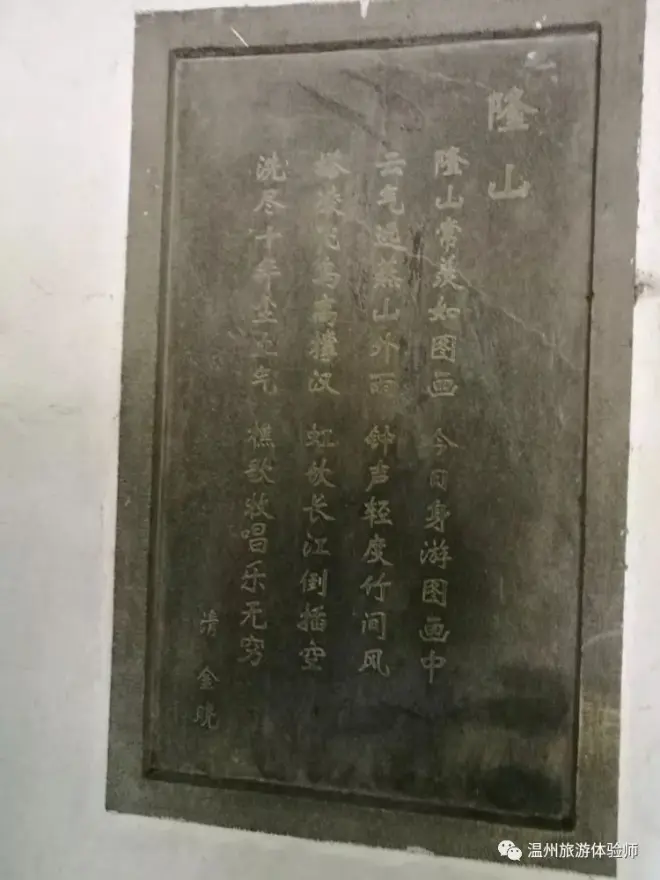 隆山
隆山常羡如图画 今日身游图画中
云气近蒸山外雨 钟声轻度竹间风
塔飞鸟高撑汉 虹饮长江倒插空
洗尽十年尘土气 樵歌牧唱乐无穷
清 金晓
温州旅游体验师